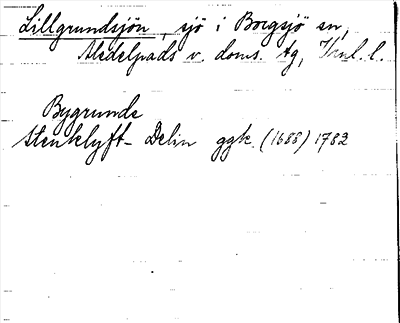 Lillgrundsjön, sjö i Borgsjö sn,
Medelpads v. doms. tg, Vnl. l.
Bygrunde
Stenklyft- Delin ggk. (1688) 1782